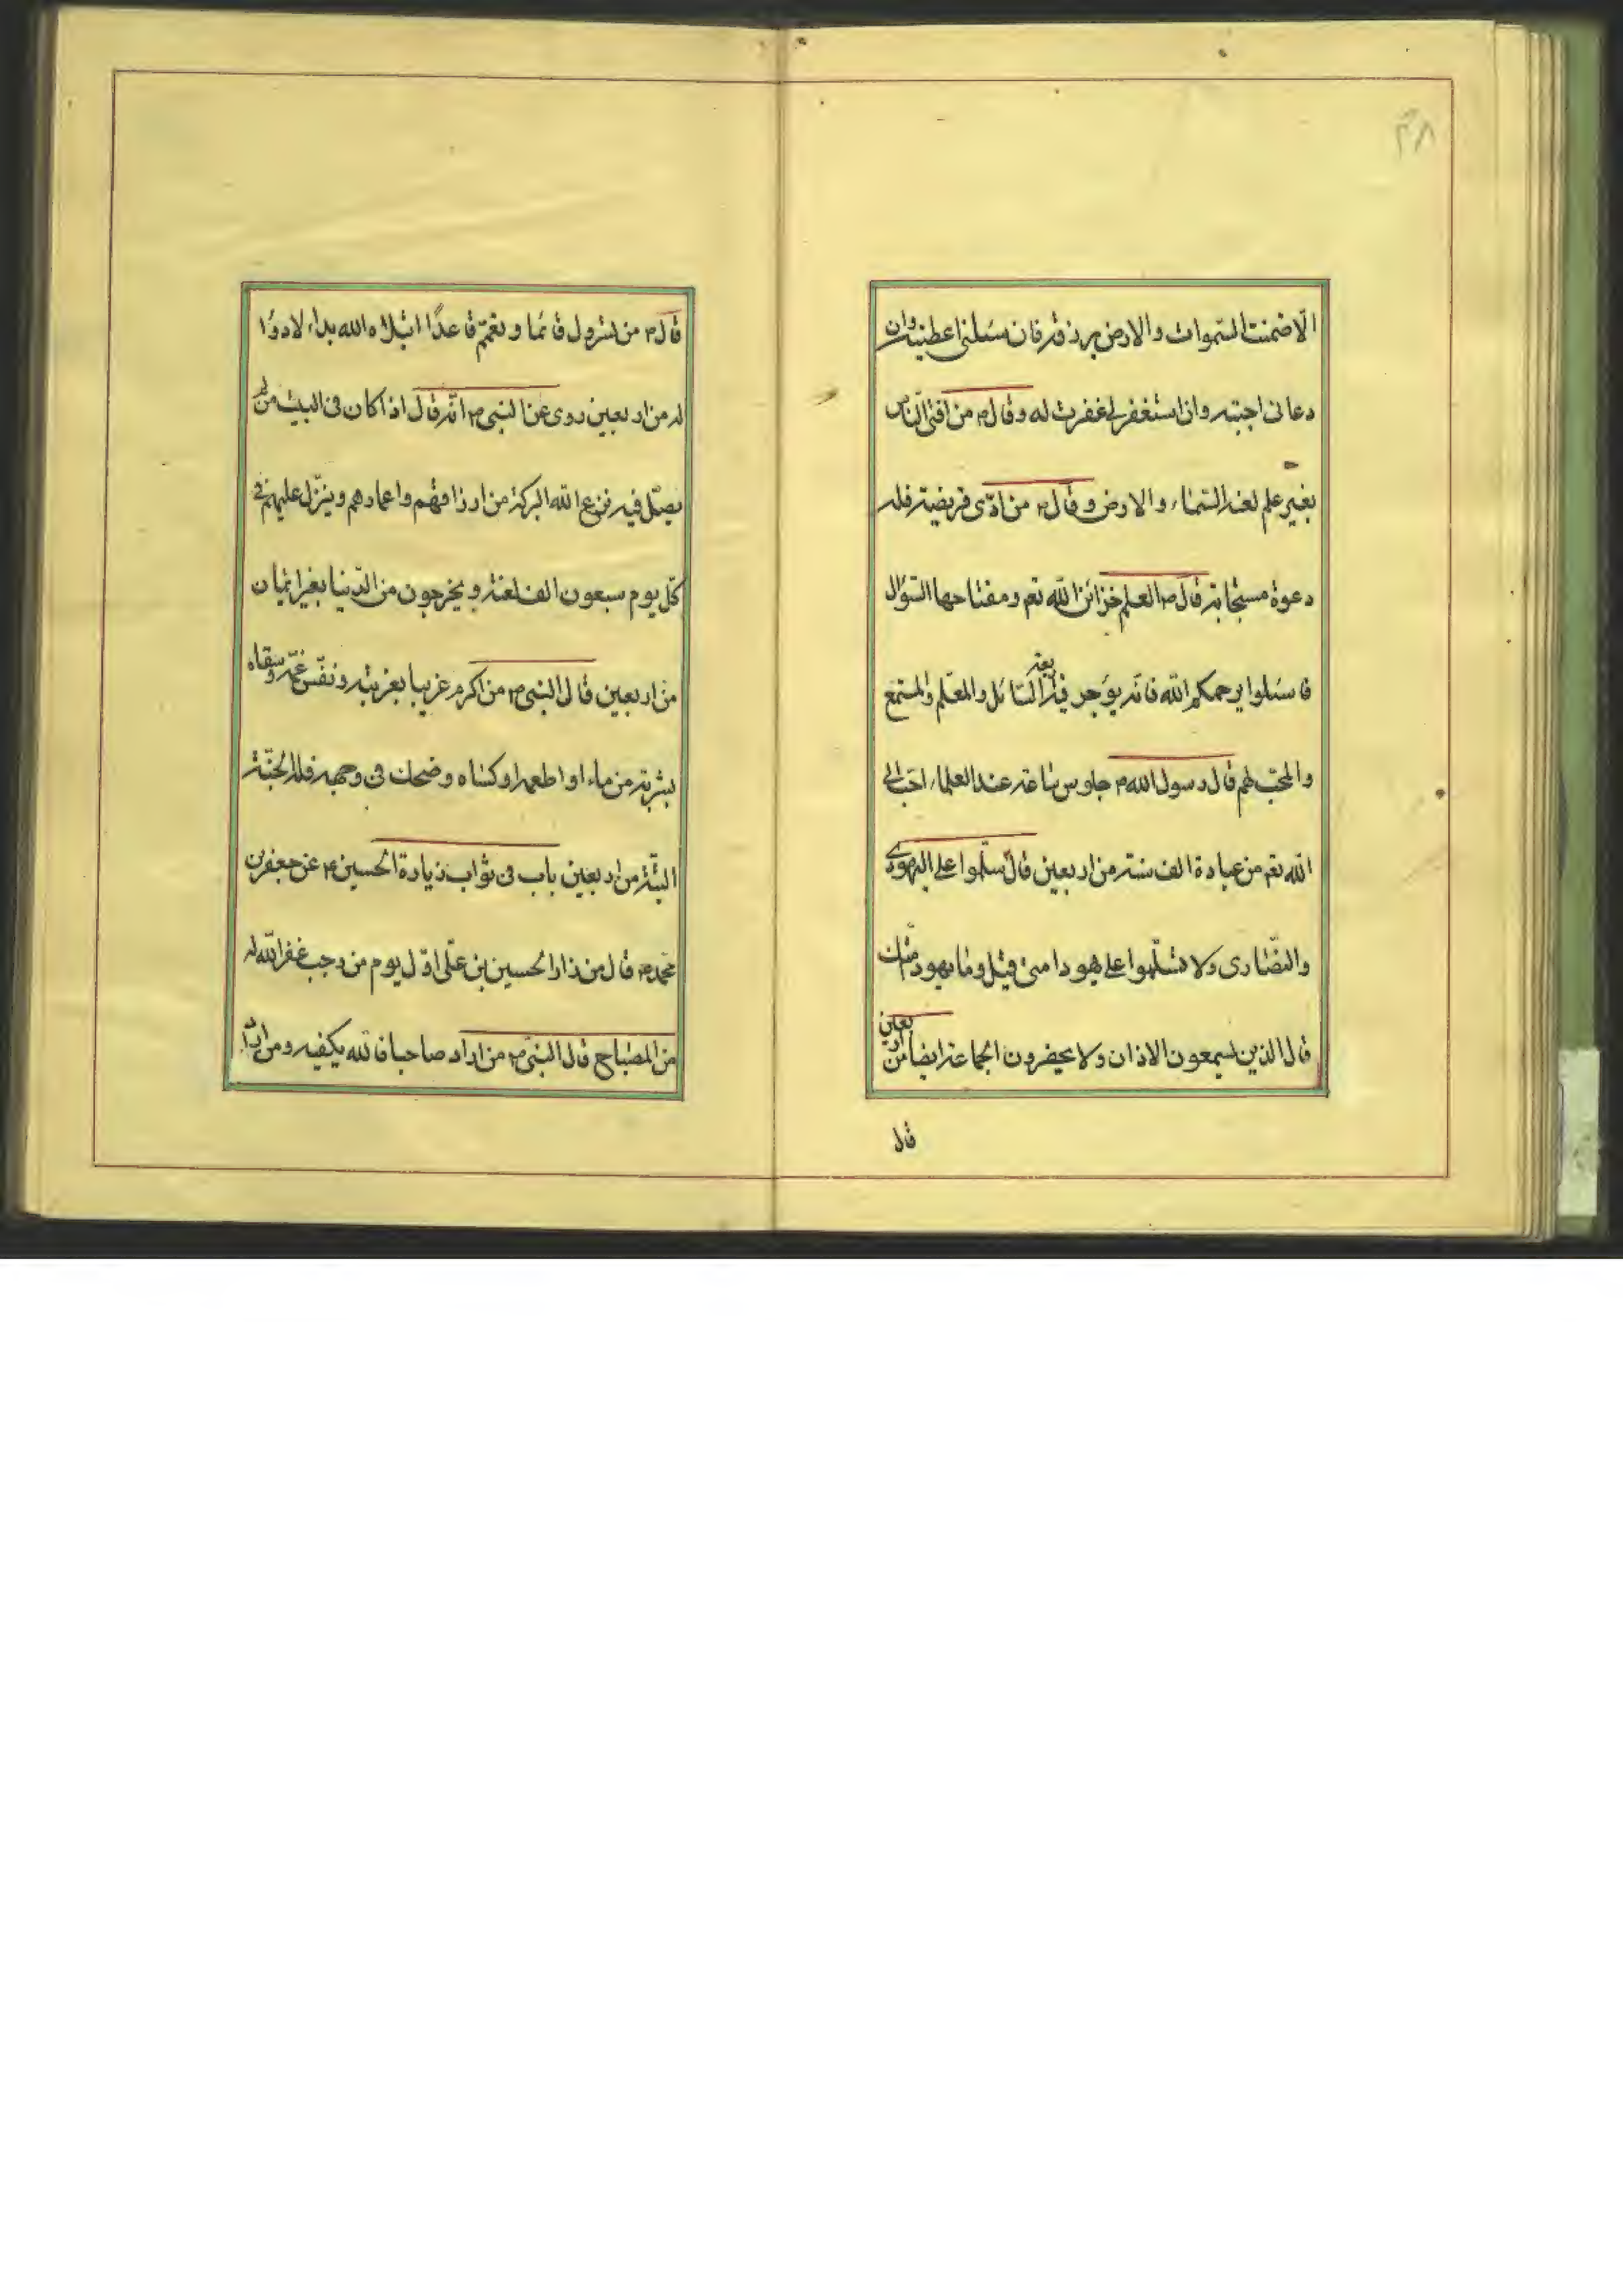 ۳۸
الا ضمنت السموات والارض برزقه فان سئلنی اعطیته وان
دعانی اجبته وان استغفر لی غفرت له وقال۴ من افتی الناس
بغیر علم لعنه السماء والارض وقال۴ من ادّی فریضة فله
دعوة مستجابة قال۴ العلم خزائن الله تعم ومفتاحها السؤال
فاسئلوا یرحمکم الله فانه یوجر فیه اربعة السائل والمعلم والمستمع
والمحب لهم قال رسول الله۴ جلوس ساعة عند العلماء احب الی
الله تعم من عبادة الف سنة من اربعین قال سلموا علی الیهودی
والنصاری ولا تسلموا علی یهود امتی قیل وما یهود امتک
قال الذین یسمعون الاذان ولا یحضرون الجماعة ایضا من اربعین
قال
قال۴ من تسرول قائما وتعمم قاعدًا ابتلاه الله بداء لا دواء
له من اربعین روی عن النبی۴ انه قال اذا کان فی البیت من لم
یصل فیه نزع الله البرکة من ارزاقهم واعمارهم وینزل علیهم فی
کل یوم سبعون الف لعنة ویخرجون من الدنیا بغیر ایمان
من اربعین قال النبی۴ من اکرم غریبا بغربته ونفس غمه وسقاه
بشربة من ماء او اطعمه او کساه وضحک فی وجهه فله الجنة
البتة من اربعین باب فی ثواب زیارة الحسین۴ عن جعفر بن
محمد۴ قال من زار الحسین بن علی اول یوم من رجب غفر الله له
من المصباح قال النبی۴ من اراد صاحبا فالله یکفیه ومن اراد